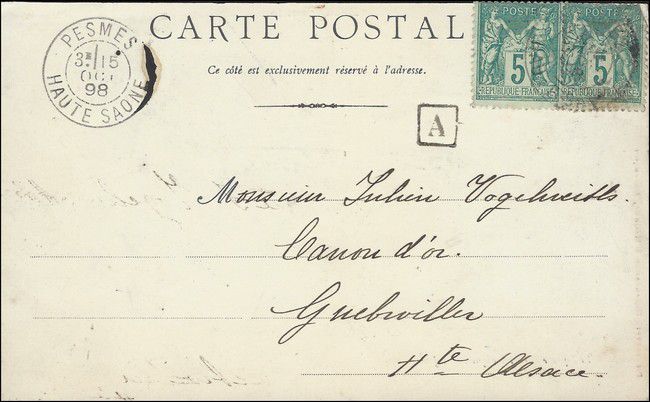 CARTE POSTAL
Ce côté est exclusivement réservé à l'adresse.
PESMES
3E 15
OCT
98
HAUTE SAONE
POSTE
5
REPUBLIQUE FRANÇAISE
POSTE
5
REPUBLIQUE FRANÇAISE
A
Monsieur Julien
Canon d'or.
Guebwiller
Hte Alsace.